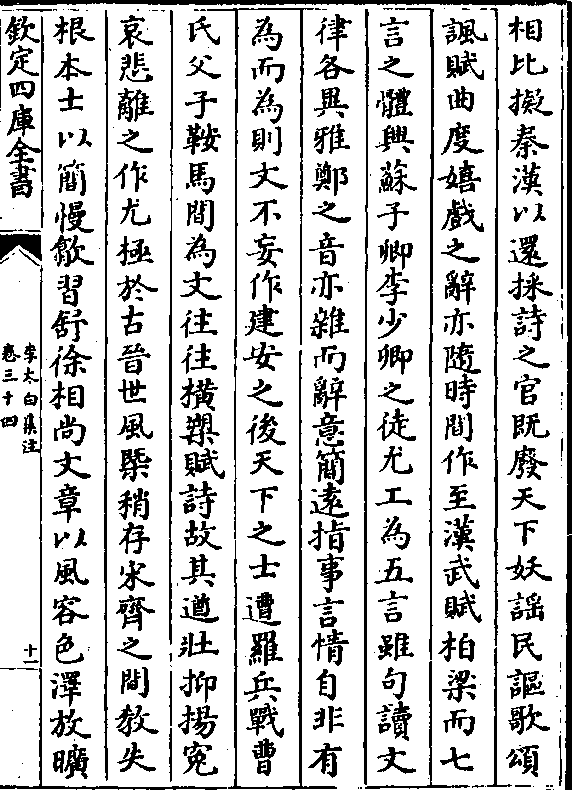 相比擬秦漢以還採詩之官既廢天下妖謡民謳歌頌
諷賦曲度嬉戲之辭亦隨時間作至漢武賦柏梁而七
言之體興蘇子卿李少卿之徒尤工為五言雖句讀文
律各異雅鄭之音亦雜而辭意簡逺指事言情自非有
為而為則文不妄作建安之後天下之士遭羅兵戰曹
氏父子鞍馬間為文往往横槊賦詩故其遒壯抑揚寃
哀悲離之作尤極於古晉世風槩稍存宋齊之間教失
根本士以簡慢歙習舒徐相尚文章以風容色澤放曠
欽定四庫全書
李太白集注
卷三十四
十一